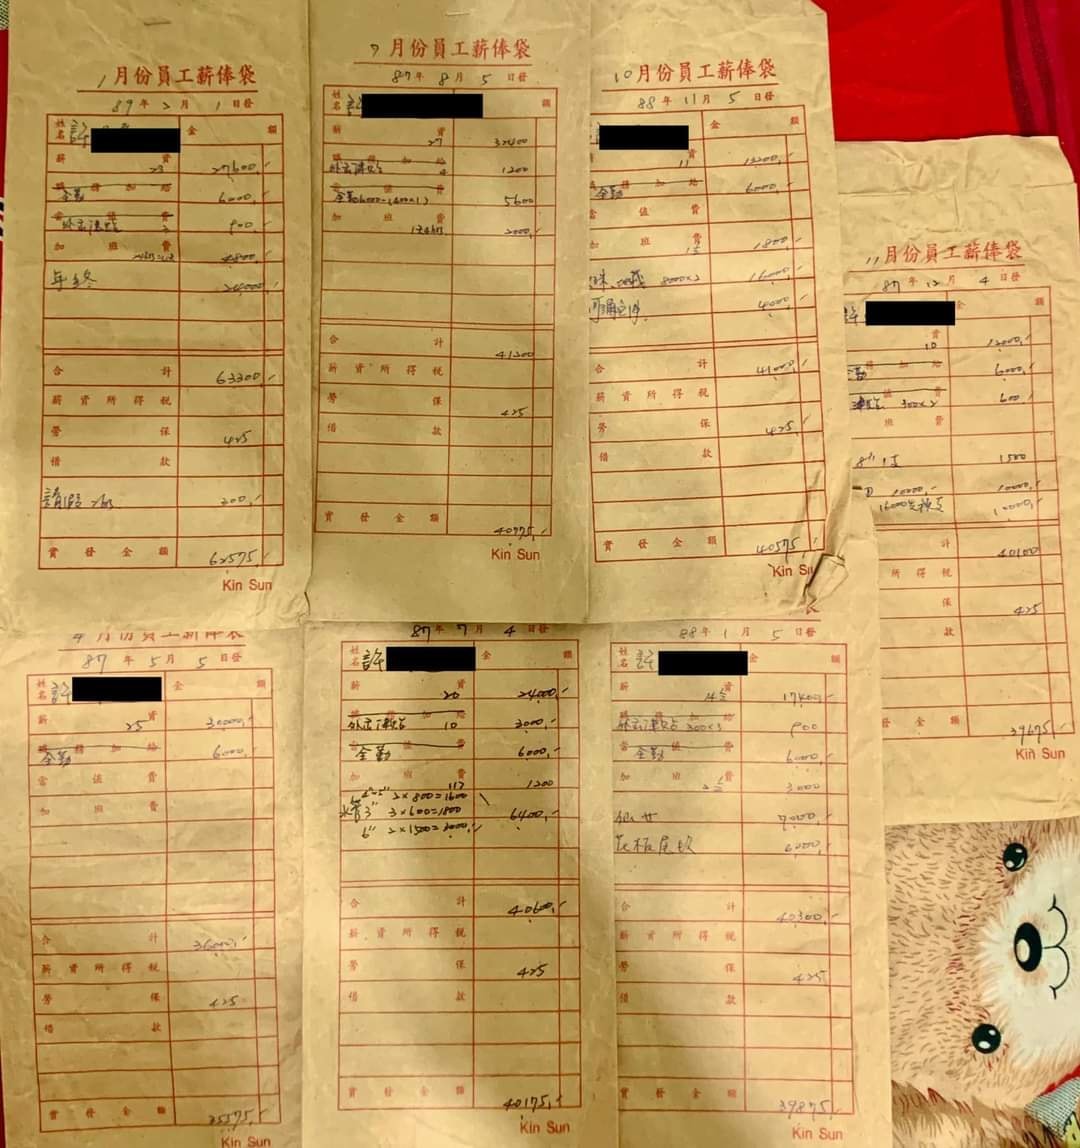 1月份員工薪俸袋
89年2月1日發
姓名 許 金額
薪資 23 27600
職務加給 全勤 6000
當值費 外出津貼 3 900
加班費 4800
年終 24000
合計 63300
薪資所得稅
勞保 425
借款
請假 200
實發金額 62575
Kin Sun
7月份員工薪俸袋
87年8月5日發
姓名 許 額
薪資 27 32400
職務加給 外出津貼 4 1200
當值費 全勤 5600
加班費 2000
合計 41200
薪資所得稅
勞保 425
借款
實發金額 40775
Kin Sun
10月份員工薪俸袋
88年11月5日發
姓名 金額
薪資 11 13200
職務加給 全勤 6000
當值費
加班費 1800
8000×2 16000
4000
合計 41000
薪資所得稅
勞保 425
借款
實發金額 40575
Kin Su
11月份員工薪俸袋
87年12月4日發
許 金額
資 10 12000
全勤 6000
津貼 費 300×2 600
班費
8" 1支 1500
10000 10000
10000
計 40100
所得稅
保 425
款
發金額 39675
Kin Sun
4月份員工薪俸袋
87年5月5日發
姓名 許 金額
薪資 25 30000
職務加給 全勤 6000
當值費
加班費
合計 36000
薪資所得稅
勞保 425
借款
實發金額 35575
Kin Sun
87年7月4日發
姓名 許 金額
薪資 20 24000
職務加給 外出津貼 10 3000
當值費 全勤 6000
加班費 1200
2×800=1600
水管 3" 3×600=1800 6400
6" 2×1500=3000
合計 40600
薪資所得稅
勞保 425
借款
實發金額 40175
Kin Sun
88年1月5日發
姓名 許 金額
薪資 14.5 17400
職務加給 外出津貼 300×3 900
當值費 全勤 6000
加班費 3000
7000
6000
合計 40300
薪資所得稅
勞保 425
借款
實發金額 39875
Kin Sun